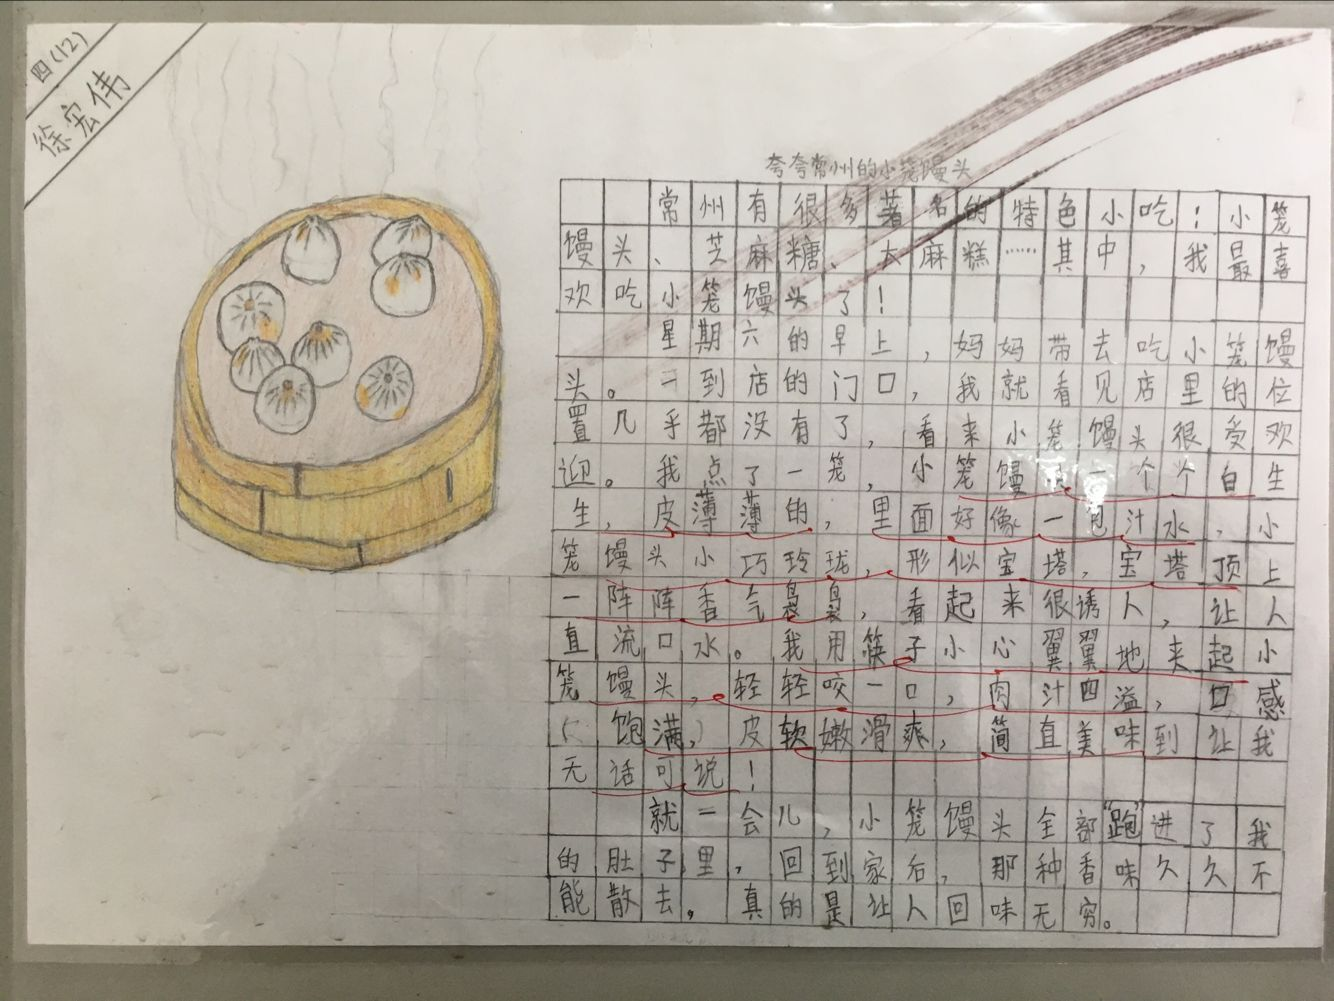 四(12)
徐宏伟
夸夸常州的小笼馒头
常州有很多著名的特色小吃！小笼
馒头、芝麻糖、大麻糕……其中，我最喜
欢吃小笼馒头了！
星期六的早上，妈妈带去吃小笼馒
头。一到店的门口，我就看见店里的位
置几乎都没有了，看来小笼馒头很受欢
迎。我点了一笼，小笼馒头一个个白生
生，皮薄薄的，里面好像一包汁水，小
笼馒头小巧玲珑，形似宝塔，宝塔顶上
一阵阵香气袅袅，看起来很诱人，让人
直流口水。我用筷子小心翼翼地夹起小
笼馒头，轻轻咬一口，肉汁四溢，口感
饱满，皮软嫩滑爽，简直美味到让我
无话可说！
就一会儿，小笼馒头全部“跑”进了我
的肚子里，回到家后，那种香味久久不
能散去。真的是让人回味无穷。